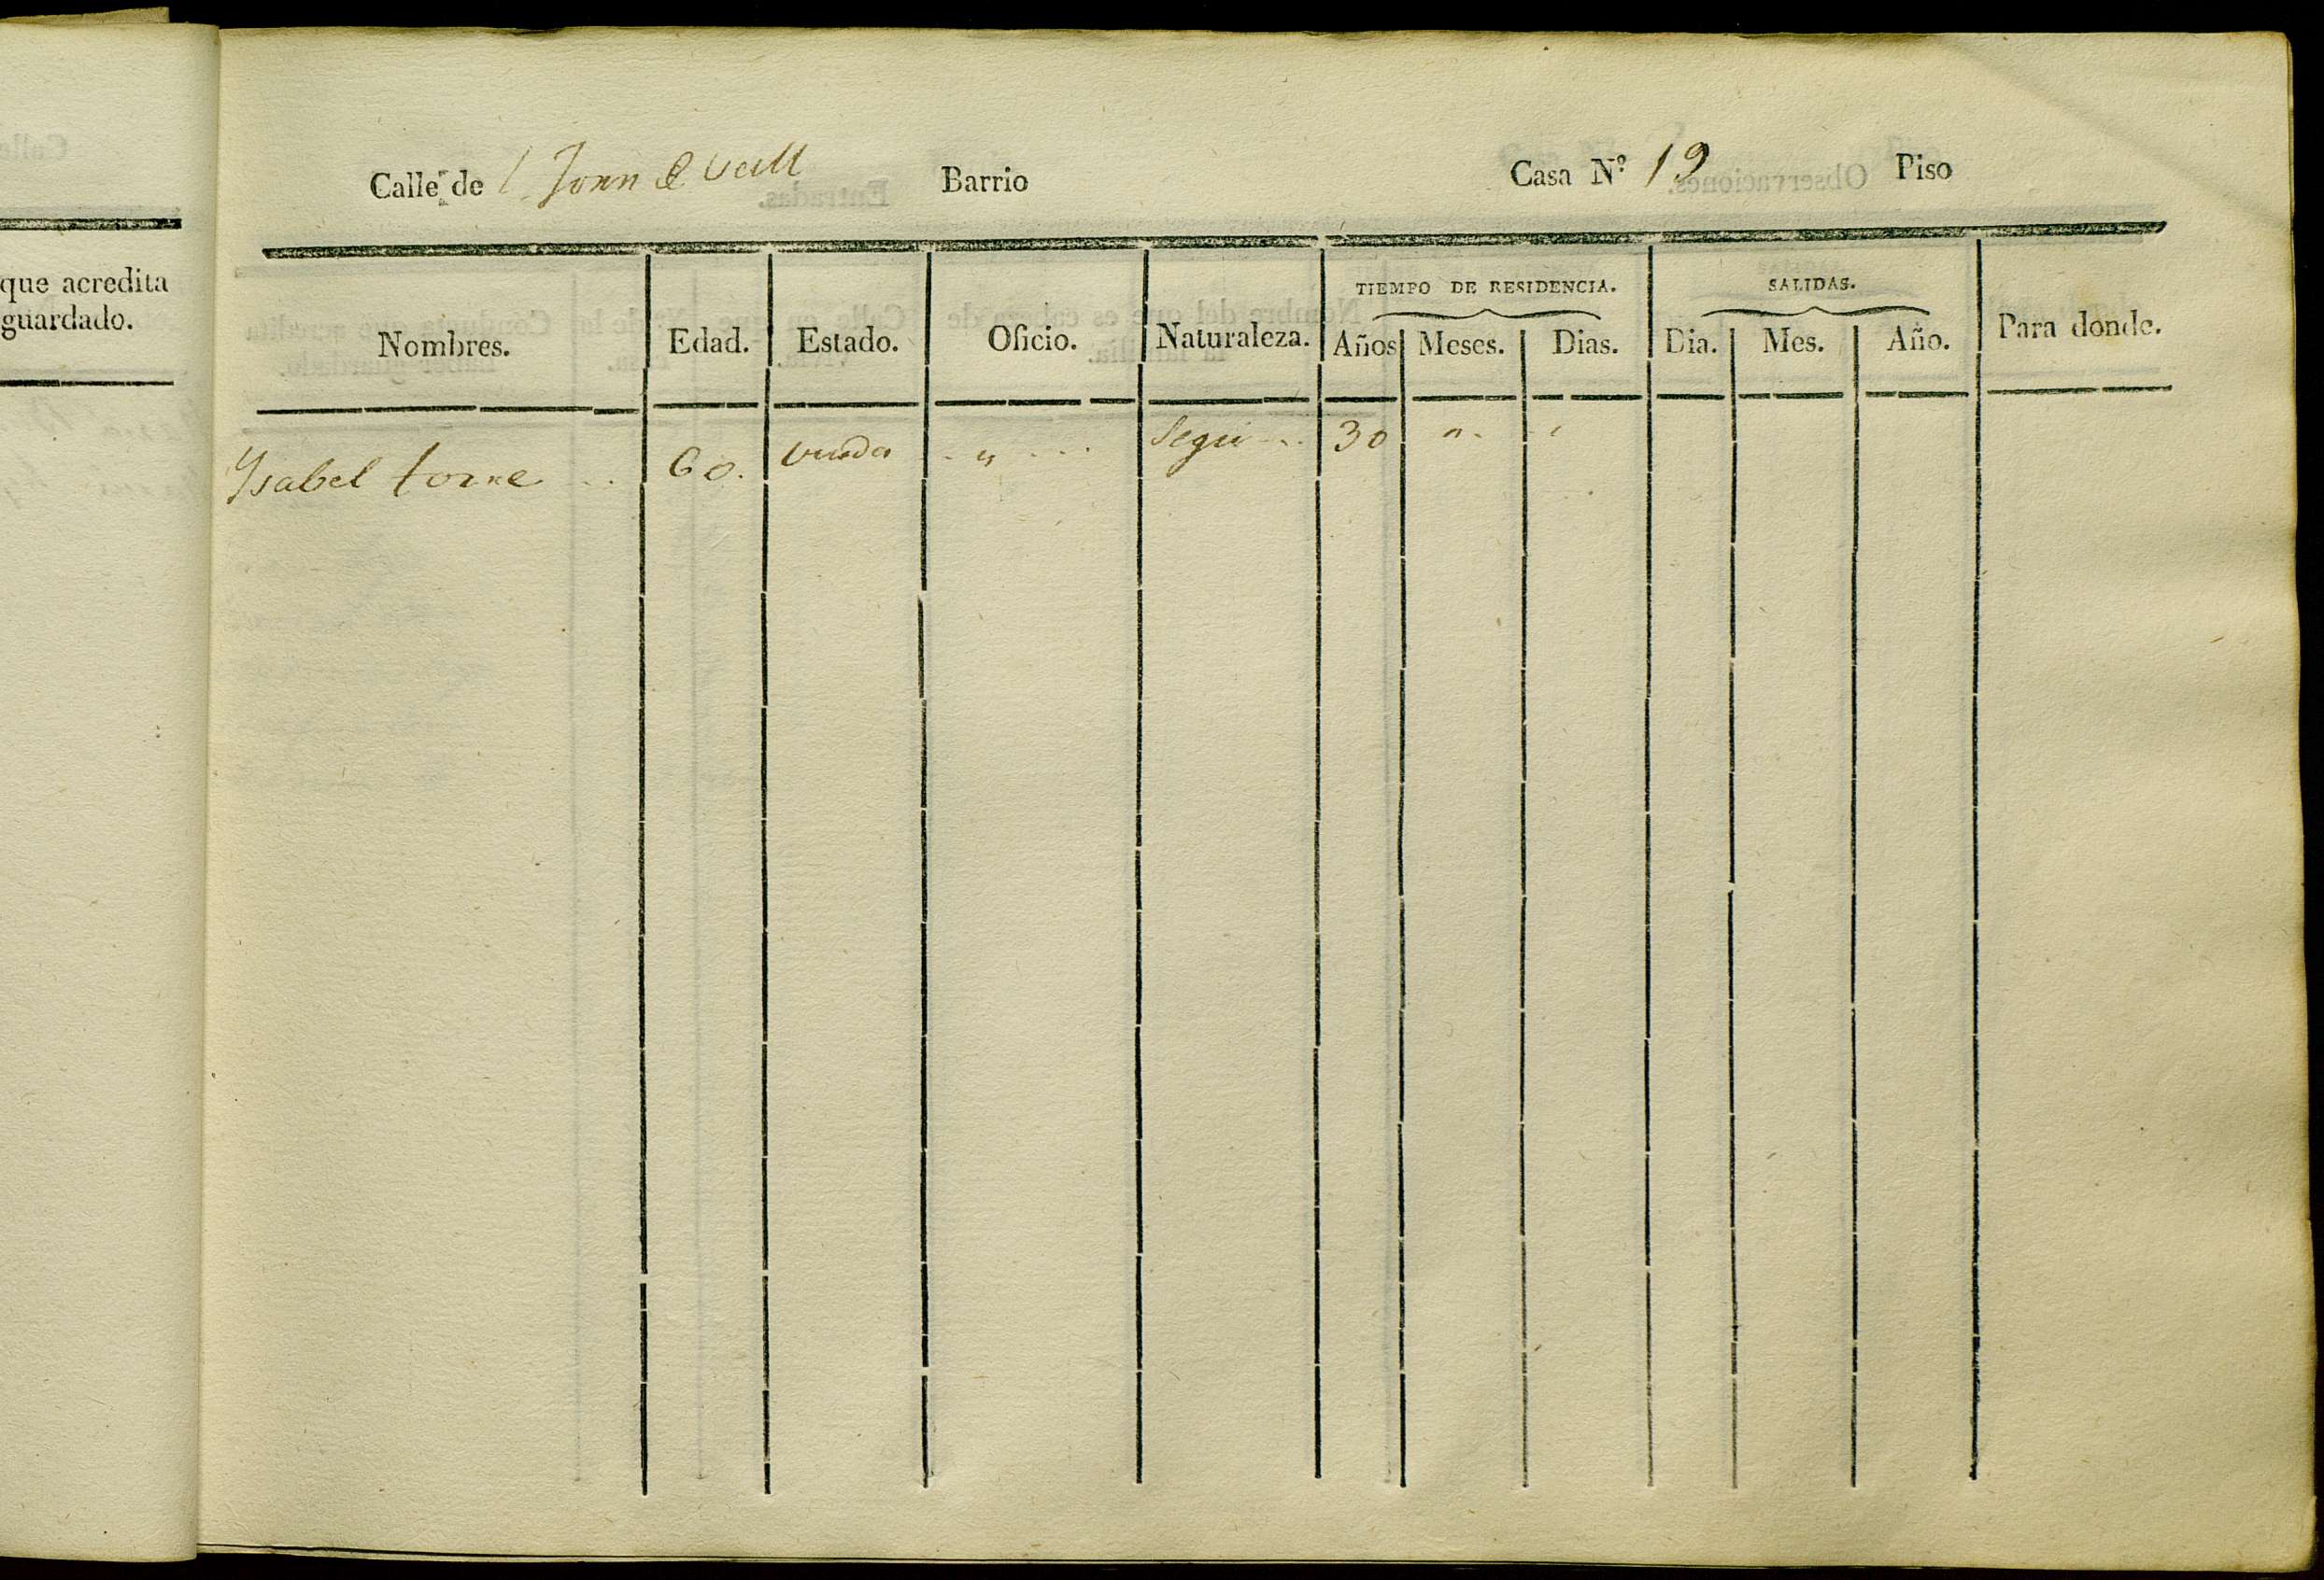 que acredita
guardado.
Calle de Barrio Casa Nº 19 Piso
TIEMPO DE RESIDENCIA. SALIDAS.
Nombres. Edad. Estado. Oficio. Naturaleza. Años Meses. Dias. Dia. Mes. Año. Para donde.
Ysabel torne 60. viuda " Segu 30 "